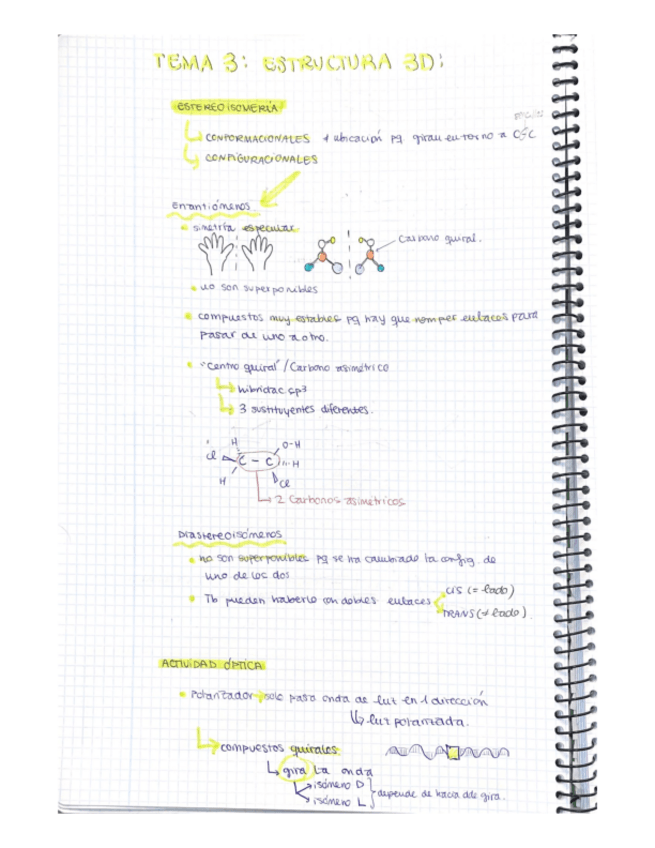 TEMA 3: ESTRUCTURA 3D:
ESTEREOISOMERÍA
CONFORMACIONALES ≠ ubicación pq giran en torno a C-C
CONFIGURACIONALES
Enantiómeros
simetría especular
Carbono quiral.
no son superponibles
compuestos muy estables pq hay que romper enlaces para
pasar de uno a otro.
"Centro quiral"/Carbono asimétrico
hibridac sp3
3 sustituyentes diferentes.
H O-H
Cl C - C H
H Cl
2 Carbonos asimetricos
Diastereoisómeros
no son superponibles pq se ha cambiado la config. de
uno de los dos
Tb pueden haberlo con dobles enlaces
CIS (= lado)
TRANS (≠ lado)
ACTIVIDAD ÓPTICA
Polarizador solo pasa onda de luz en 1 dirección
luz polarizada.
compuestos quirales
gira la onda
isómero D
isómero L
depende de hacia dde gira.